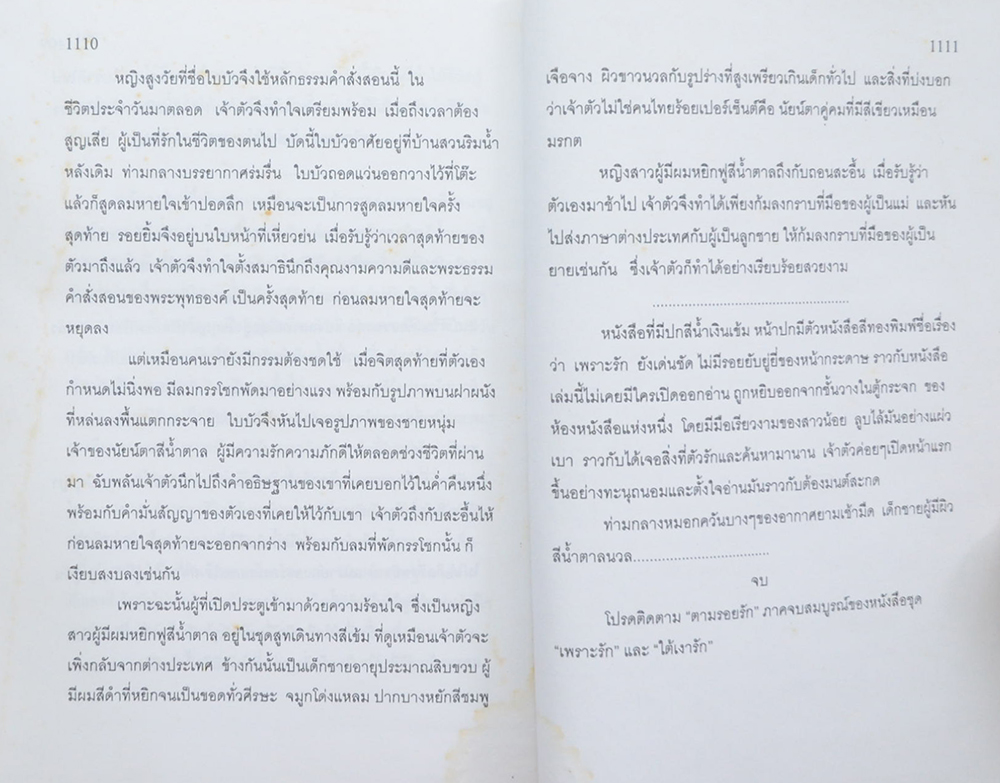 1110
หญิงสูงวัยที่ชื่อใบบัวจึงใช้หลักธรรมคำสั่งสอนนี้ ใน
ชีวิตประจำวันมาตลอด เจ้าตัวจึงทำใจเตรียมพร้อม เมื่อถึงเวลาต้อง
สูญเสีย ผู้เป็นที่รักในชีวิตของตนไป บัดนี้ใบบัวอาศัยอยู่ที่บ้านสวนริมน้ำ
หลังเดิม ท่ามกลางบรรยากาศร่มรื่น ใบบัวถอดแว่นออกวางไว้ที่โต๊ะ
แล้วก็สูดลมหายใจเข้าปอดลึก เหมือนจะเป็นการสูดลมหายใจครั้ง
สุดท้าย รอยยิ้มจึงอยู่บนใบหน้าที่เหี่ยวย่น เมื่อรับรู้ว่าเวลาสุดท้ายของ
ตัวมาถึงแล้ว เจ้าตัวจึงทำใจตั้งสมาธินึกถึงคุณงามความดีและพระธรรม
คำสั่งสอนของพระพุทธองค์ เป็นครั้งสุดท้าย ก่อนลมหายใจสุดท้ายจะ
หยุดลง
แต่เหมือนคนเรายังมีกรรมต้องชดใช้ เมื่อจิตสุดท้ายที่ตัวเอง
กำหนดไม่นิ่งพอ มีลมกรรโชกพัดมาอย่างแรง พร้อมกับรูปภาพบนฝาผนัง
ที่หล่นลงพื้นแตกกระจาย ใบบัวจึงหันไปเจอรูปภาพของชายหนุ่ม
เจ้าของนัยน์ตาสีน้ำตาล ผู้มีความรักความภักดีให้ตลอดช่วงชีวิตที่ผ่าน
มา ฉับพลันเจ้าตัวนึกไปถึงคำอธิษฐานของเขาที่เคยบอกไว้ในค่ำคืนหนึ่ง
พร้อมกับคำมั่นสัญญาของตัวเองที่เคยให้ไว้กับเขา เจ้าตัวถึงกับสะอื้นไห้
ก่อนลมหายใจสุดท้ายจะออกจากร่าง พร้อมกับลมที่พัดกรรโชกนั้น ก็
เงียบสงบลงเช่นกัน
เพราะฉะนั้นผู้ที่เปิดประตูเข้ามาด้วยความร้อนใจ ซึ่งเป็นหญิง
สาวผู้มีผมหยิกฟูสีน้ำตาล อยู่ในชุดสูทเดินทางสีเข้ม ที่ดูเหมือนเจ้าตัวจะ
เพิ่งกลับจากต่างประเทศ ข้างกันนั้นเป็นเด็กชายอายุประมาณสิบขวบ ผู้
มีผมสีดำที่หยิกจนเป็นขอดทั่วศีรษะ จมูกโด่งแหลม ปากบางหยักสีชมพู
1111
เจือจาง ผิวขาวนวลกับรูปร่างที่สูงเพรียวเกินเด็กทั่วไป และสิ่งที่บ่งบอก
ว่าเจ้าตัวไม่ใช่คนไทยร้อยเปอร์เซ็นต์คือ นัยน์ตาคู่คมที่มีสีเขียวเหมือน
มรกต
หญิงสาวผู้มีผมหยิกฟูสีน้ำตาลถึงกับถอนสะอื้น เมื่อรับรู้ว่า
ตัวเองมาช้าไป เจ้าตัวจึงทำได้เพียงก้มลงกราบที่มือของผู้เป็นแม่ และหัน
ไปส่งภาษาต่างประเทศกับผู้เป็นลูกชาย ให้ก้มลงกราบที่มือของผู้เป็น
ยายเช่นกัน ซึ่งเจ้าตัวก็ทำได้อย่างเรียบร้อยสวยงาม
..................................................
หนังสือที่มีปกสีน้ำเงินเข้ม หน้าปกมีตัวหนังสือสีทองพิมพ์ชื่อเรื่อง
ว่า เพราะรัก ยังเด่นชัด ไม่มีรอยยับยู่ยี่ของหน้ากระดาษ ราวกับหนังสือ
เล่มนี้ไม่เคยมีใครเปิดออกอ่าน ถูกหยิบออกจากชั้นวางในตู้กระจก ของ
ห้องหนังสือแห่งหนึ่ง โดยมีมือเรียวงามของสาวน้อย ลูบไล้มันอย่างแผ่ว
เบา ราวกับได้เจอสิ่งที่ตัวรักและค้นหามานาน เจ้าตัวค่อยๆเปิดหน้าแรก
ขึ้นอย่างทะนุถนอมและตั้งใจอ่านมันราวกับต้องมนต์สะกด
ท่ามกลางหมอกควันบางๆของอากาศยามเช้ามืด เด็กชายผู้มีผิว
สีน้ำตาลนวล...................................
จบ
โปรดติดตาม “ตามรอยรัก” ภาคจบสมบูรณ์ของหนังสือชุด
“เพราะรัก” และ “ใต้เงารัก”